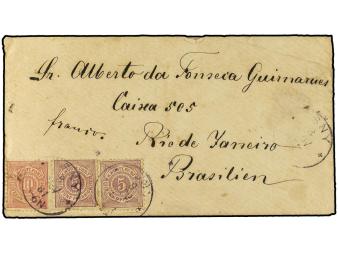 Sr. Alberto da Fonseca Guimaraes
Caixa 505
franco.
Rio de Janeiro
Brasilien
5